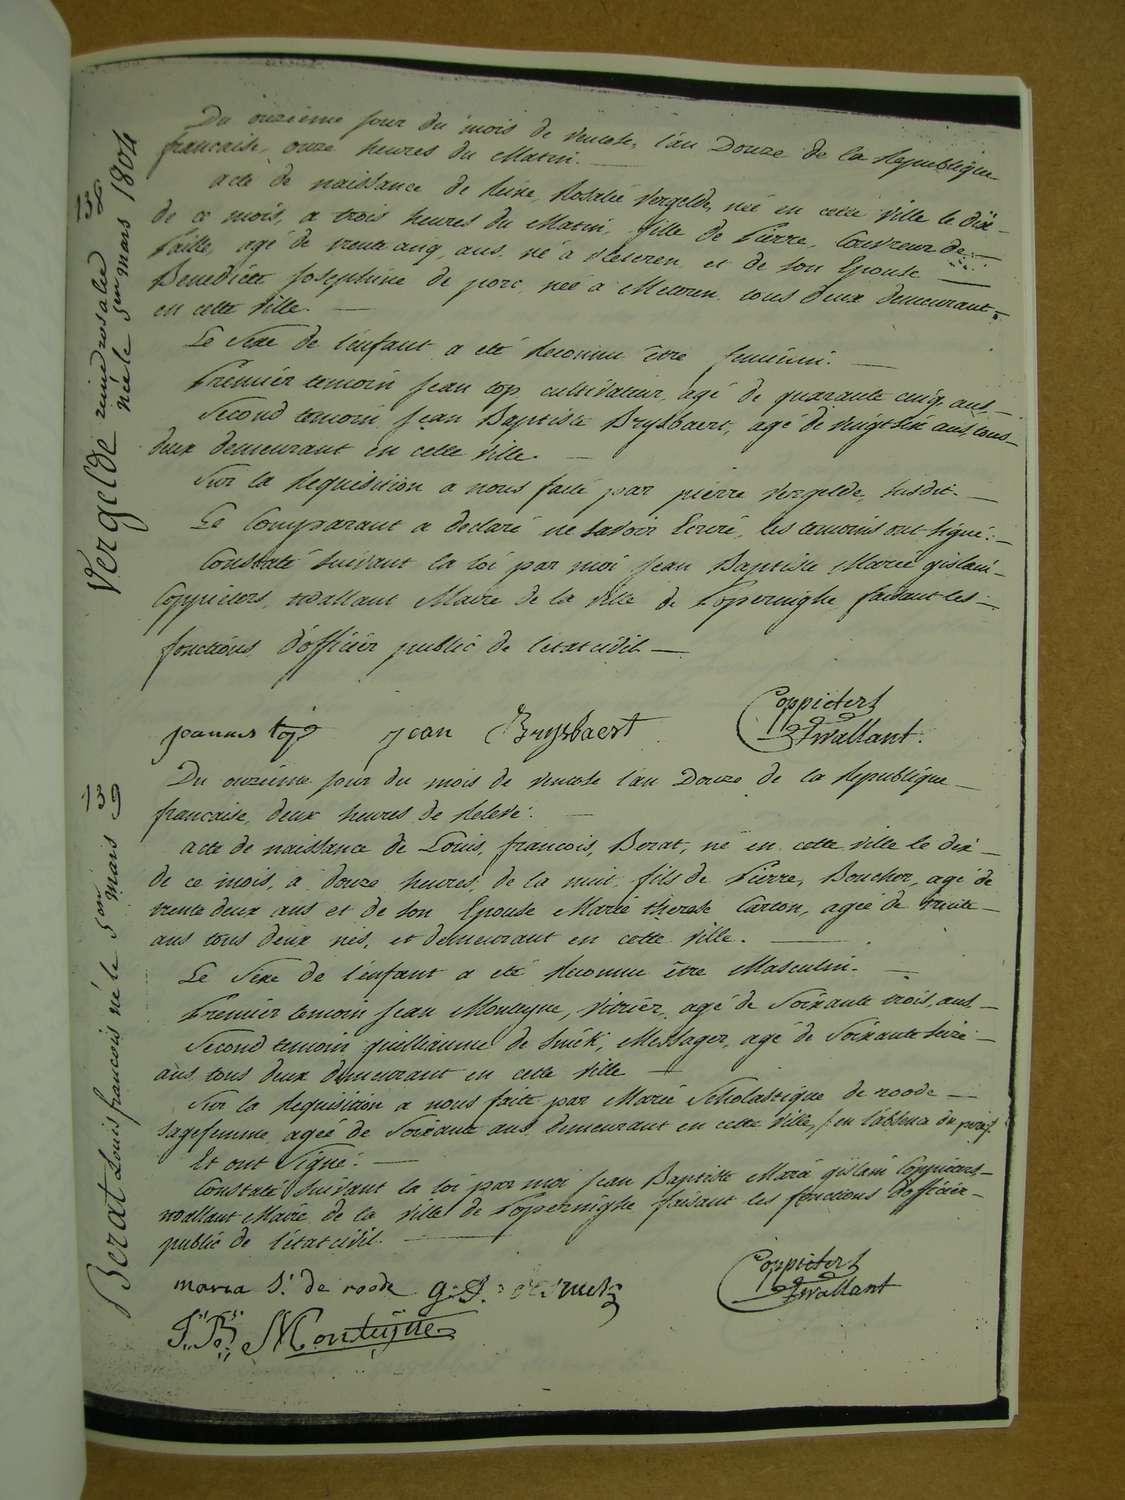 Du onzieme jour du mois de ventose, l'an Douze de la Republique
francaise, onze heures du Matin.
138
Vergelde reine rosalie
née le 5en mars 1804
acte de naissance de Reine, Rosalie Vergelde, née en cette ville le dix
de ce mois, a trois heures du Matin, fille de Pierre, Couvreur de
Paille, agé de trente cinq ans, né à et de son Epouse
Benedicte Josephine de porc, née à tous deux demeurant
en cette ville.
Le Sexe de l'enfant a eté Reconnu être feminin.
Premier temoin Jean top, cultivateur, agé de quarante cinq ans,
Second temoin, Jean Baptiste Brysbaert, agé de vingt six ans, tous
deux demeurant en cette ville.
Sur la Requisition a nous faite par pierre Vergelde, susdit.
Le Comparant a declaré ne savoir Ecrire, les temoins ont signé.
Constaté suivant la loi par moi Jean Baptiste Marie gislain
Coppieters, wallant Maire de la ville de Poperinghe faisant les
fonctions d'officier public de l'etat civil
joannes top jean Brysbaert Coppieters
Twallant.
139
Berat Louis francois né le 5en
mars
Du onzieme jour du mois de ventose l'an Douze de la Republique
francaise, deux heures de Relevé.
acte de naissance de Louis, francois, Berat, né en cette ville le dix
de ce mois, a douze heures, de la nuit, fils de Pierre, Boucher, agé de
trente deux ans et de son Epouse Marie therese Carton, agée de trente
ans tous deux nés, et demeurant en cette ville.
Le Sexe de l'enfant a eté Reconnu être Masculin.
Premier temoin Jean Montayne, vitrier, agé de Soixante trois ans
Second temoin guilliaume de Messager, agé de Soixante seize
ans, tous deux demeurant en cette ville
Sur la Requisition a nous faite par Marie Scholastique de roode
sagefemme agée de Soixante ans, demeurant en cette ville, /: en l'absence du pere :/
Et ont Signé.
Constaté Suivant la loi par moi Jean Baptiste Marie gislain Coppieters
wallant Maire de la ville de Poperinghe faisant les fonctions d'officier
public de l'etat civil.
maria S. de roode g: J. Coppieters
Twallant
J. B. Montayne